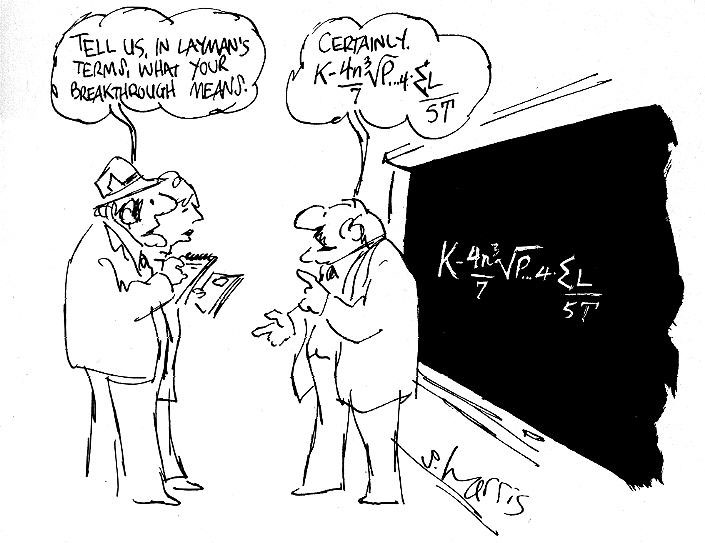 TELL US, IN LAYMAN'S
TERMS, WHAT YOUR
BREAKTHROUGH MEANS.
CERTAINLY.
K-4n³√P...4·ΣL
7 5T
K-4n³√P...4·ΣL
7 5T
s. harris